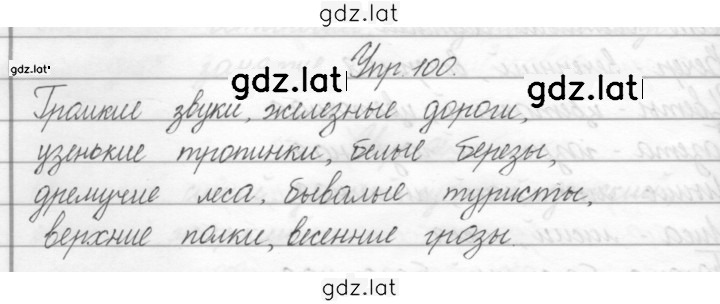 gdz.lat
gdz.lat
Упр. 100.
gdz.lat
gdz.lat
Громкие звуки, железные дороги,
узенькие тропинки, белые березы,
дремучие леса, бывалые туристы,
верхние полки, весенние грозы.
gdz.lat